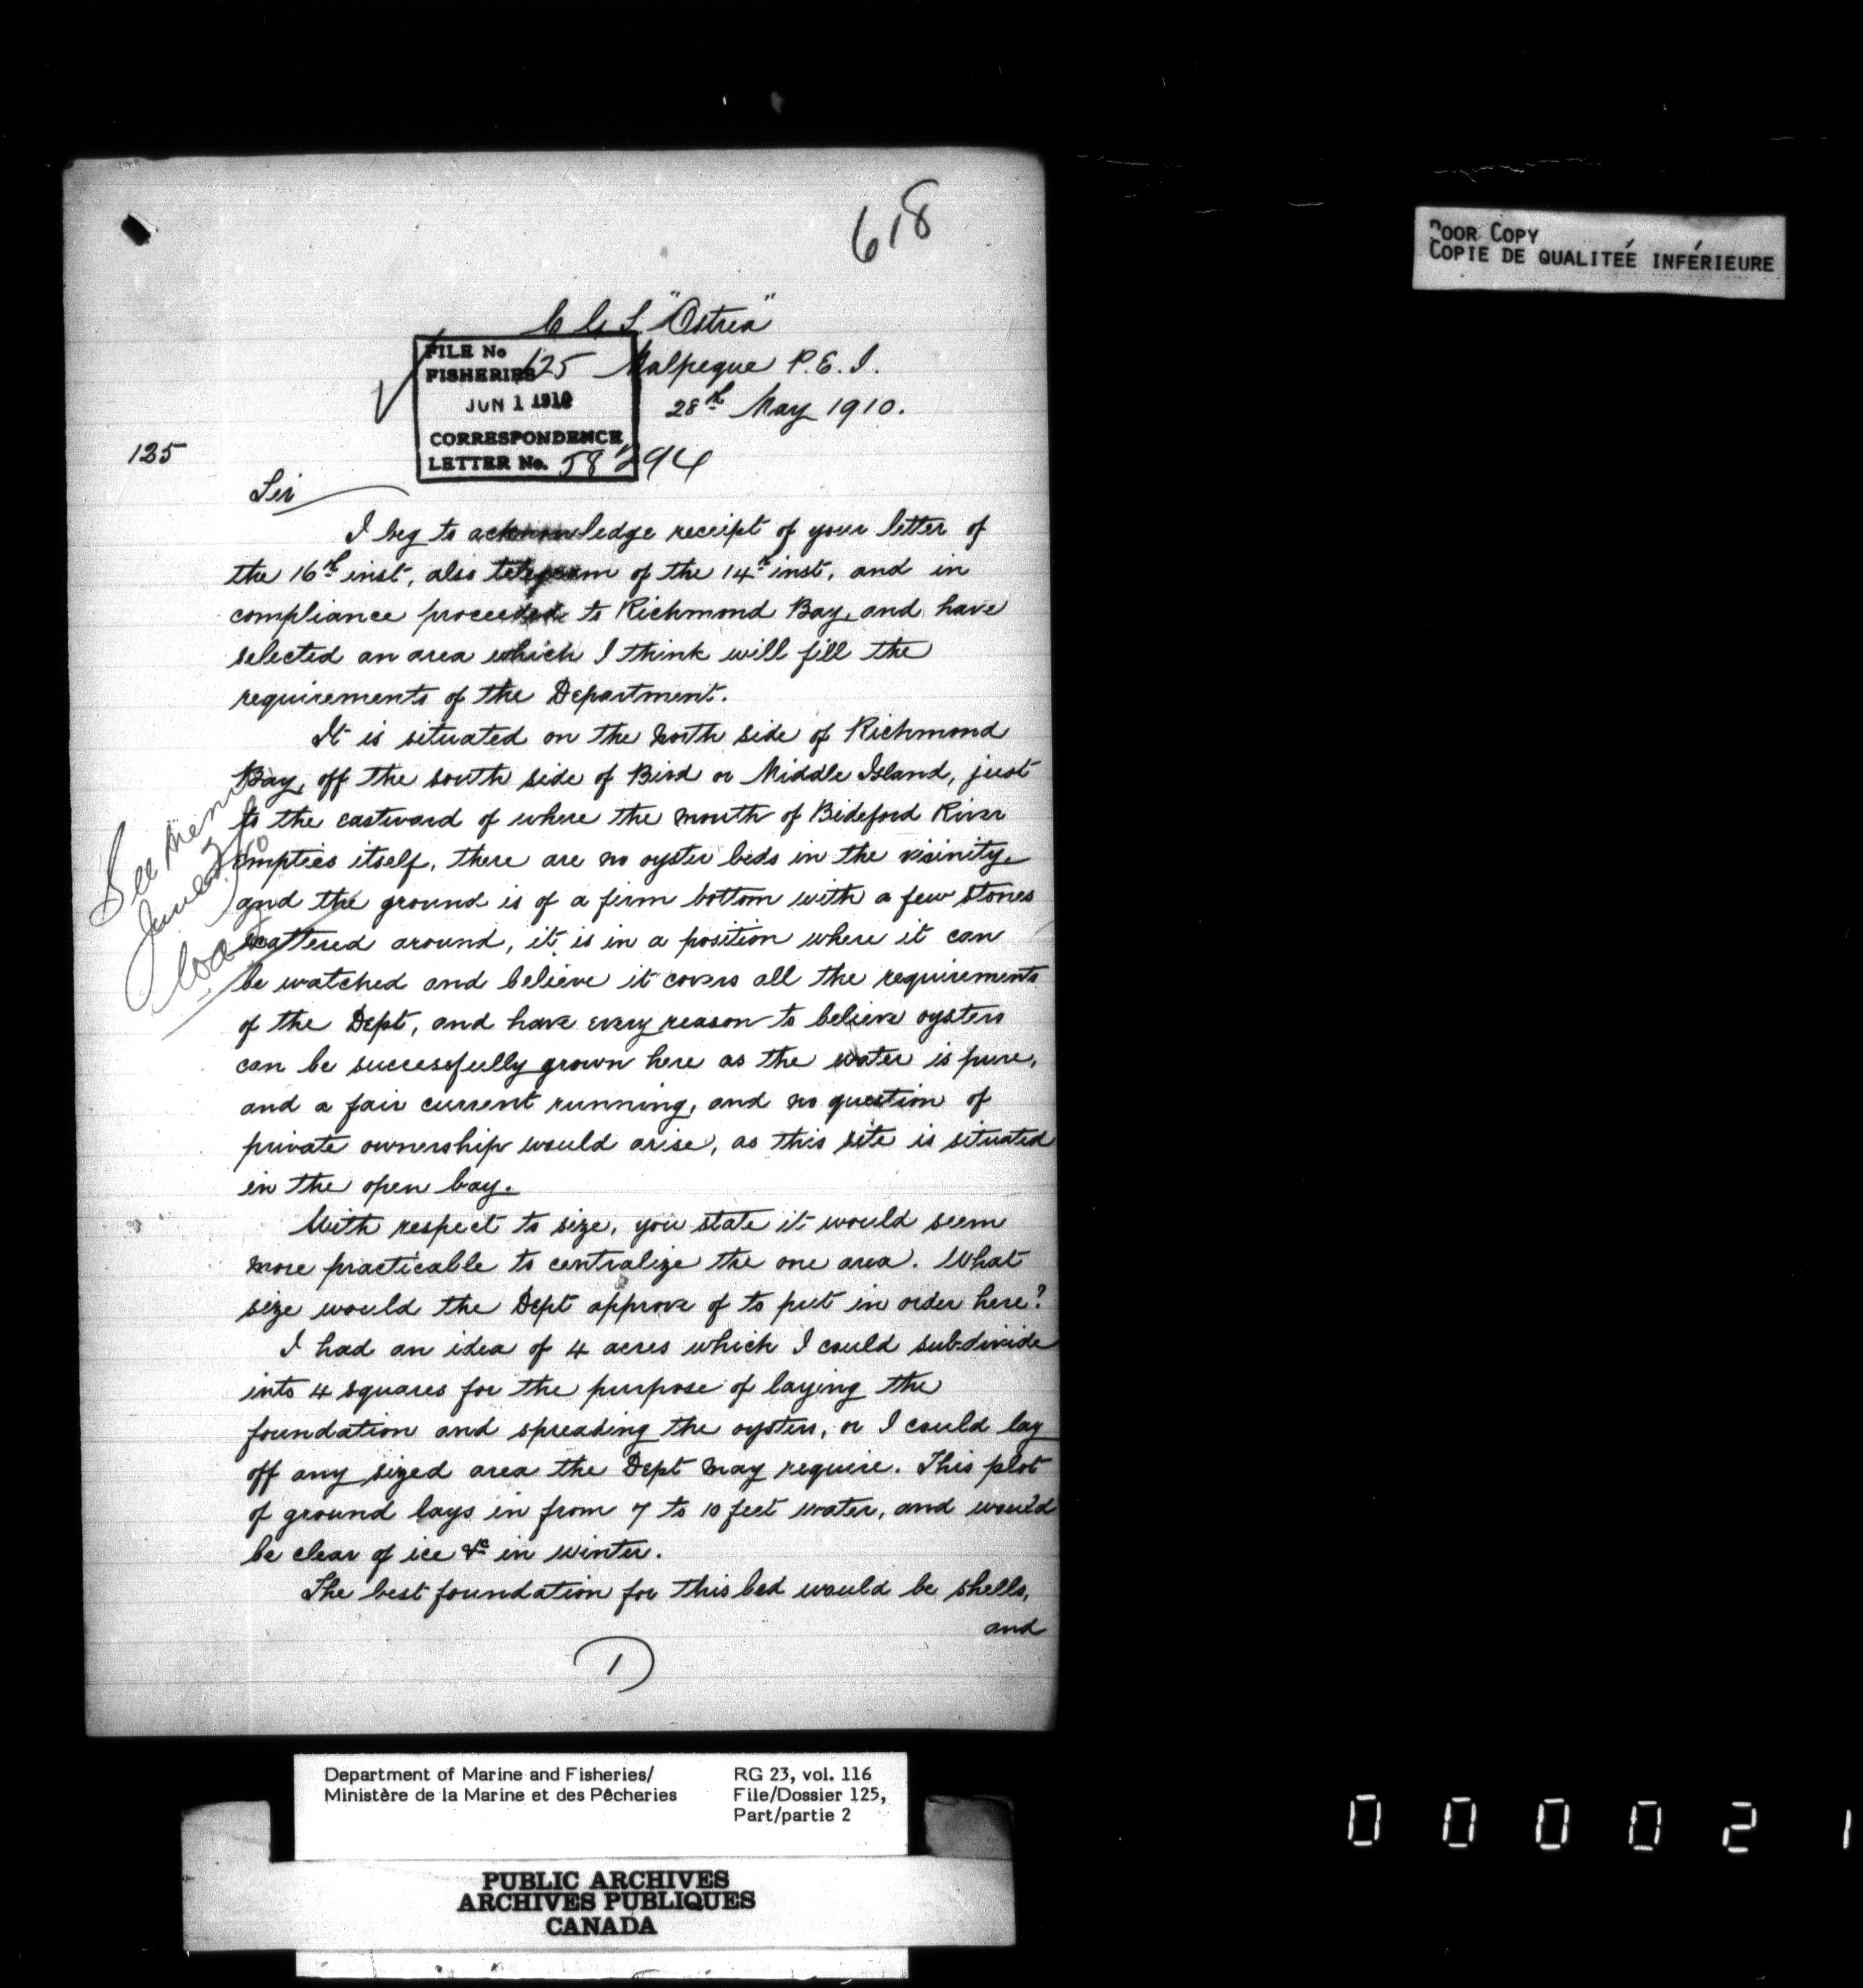 618
POOR COPY
COPIE DE QUALITEÉ INFÉRIEURE
C G S "Ostrea"
FILE No 125
FISHERIES
JUN 1 1910
CORRESPONDENCE
LETTER No. 58294
Malpeque P.E.I.
28th May 1910.
125
Sir
I beg to acknowledge receipt of your letter of
the 16th inst, also telegram of the 14th inst, and in
compliance proceeded to Richmond Bay, and have
selected an area which I think will fill the
requirements of the Department.
It is situated on the North side of Richmond
Bay, off the south side of Bird or Middle Island, just
to the eastward of where the mouth of Bideford River
empties itself, there are no oyster beds in the vicinity
and the ground is of a firm bottom with a few stones
scattered around, it is in a position where it can
be watched and believe it covers all the requirements
of the Dept, and have every reason to believe oysters
can be successfully grown here as the water is pure,
and a fair current running, and no question of
private ownership would arise, as this site is situated
in the open bay.
See Mem
June
With respect to size, you state it would seem
more practicable to centralize the one area. What
size would the Dept approve of to put in order here?
I had an idea of 4 acres which I could sub-divide
into 4 squares for the purpose of laying the
foundation and spreading the oysters, or I could lay
off any sized area the Dept may require. This plot
of ground lays in from 7 to 10 feet water, and would
be clear of ice &c in winter.
The best foundation for this bed would be shells,
and
1
Department of Marine and Fisheries/
Ministère de la Marine et des Pêcheries
RG 23, vol. 116
File/Dossier 125,
Part/partie 2
PUBLIC ARCHIVES
ARCHIVES PUBLIQUES
CANADA
000021